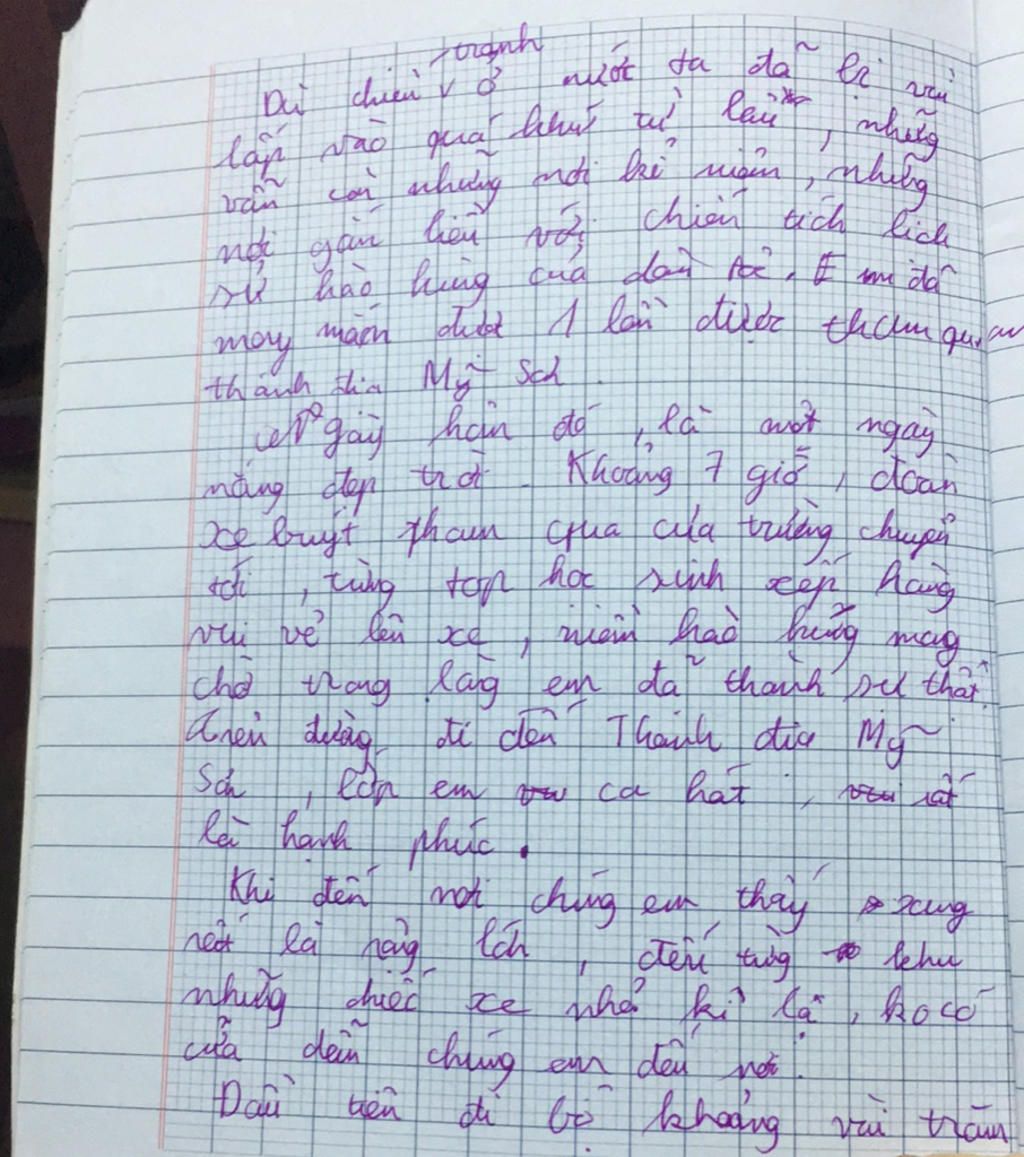 tranh
Dù chiến v ở nước ta đã bị vùi
lấp vào quá khứ từ lâu, nhưng
vẫn còn những nơi kỉ niệm, những
nơi gắn liền với chiến tích lịch
sử hào hùng của dân tộc. E m đã
may mắn được 1 lần được tham quan
thánh địa Mỹ Sơn.
Ngày hôm đó, là một ngày
nắng đẹp trời. Khoảng 7 giờ, đoàn
xe buýt tham qua của trường chuyển
tới, từng tốp học sinh xếp hàng
vui vẻ lên xe, niềm hào hứng mong
chờ trong lòng em đã thành sự thật.
Trên đường đi đến Thánh địa Mỹ
Sơn, lớp em ca hát, rất
là hạnh phúc.
Khi đến nơi chúng em thấy xung
là rộng lớn, đến từng khu
những chiếc xe nhỏ kì lạ, ko có
cửa dẫn chúng em đến nơi.
Đầu tiên đi bộ khoảng vài trăm